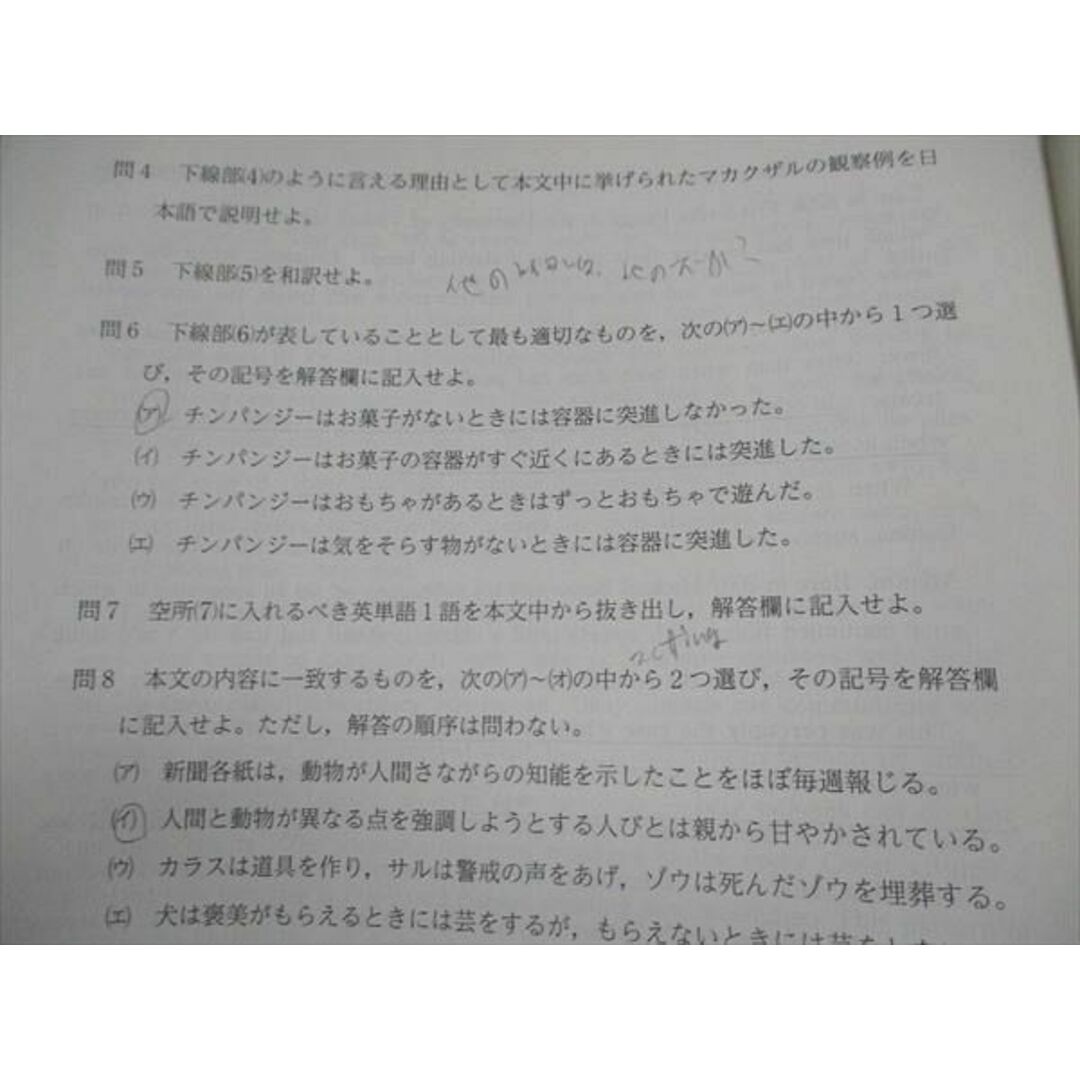 問4 下線部(4)のように言える理由として本文中に挙げられたマカクザルの観察例を日
本語で説明せよ。
問5 下線部(5)を和訳せよ。
他の
問6 下線部(6)が表していることとして最も適切なものを，次の(ア)～(エ)の中から1つ選
び，その記号を解答欄に記入せよ。
(ア) チンパンジーはお菓子がないときには容器に突進しなかった。
(イ) チンパンジーはお菓子の容器がすぐ近くにあるときには突進した。
(ウ) チンパンジーはおもちゃがあるときはずっとおもちゃで遊んだ。
(エ) チンパンジーは気をそらす物がないときには容器に突進した。
問7 空所(7)に入れるべき英単語1語を本文中から抜き出し，解答欄に記入せよ。
問8 本文の内容に一致するものを，次の(ア)～(オ)の中から2つ選び，その記号を解答欄
に記入せよ。ただし，解答の順序は問わない。
(ア) 新聞各紙は，動物が人間さながらの知能を示したことをほぼ毎週報じる。
(イ) 人間と動物が異なる点を強調しようとする人びとは親から甘やかされている。
(ウ) カラスは道具を作り，サルは警戒の声をあげ，ゾウは死んだゾウを埋葬する。
(エ) 犬は褒美がもらえるときには芸をするが，もらえないときには芸をし